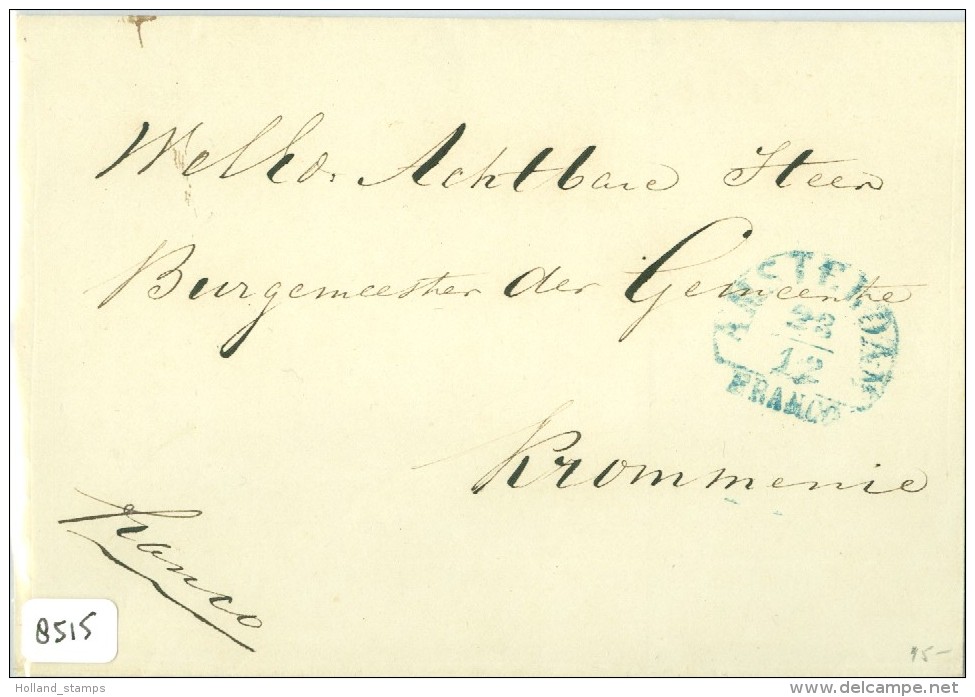 WelEd. Achtbare Heer
Burgemeester der Gemeente
AMSTERDAM
23
12
FRANCO
Krommenie
franco
8515
15-
Holland_stamps
www.delcampe.net